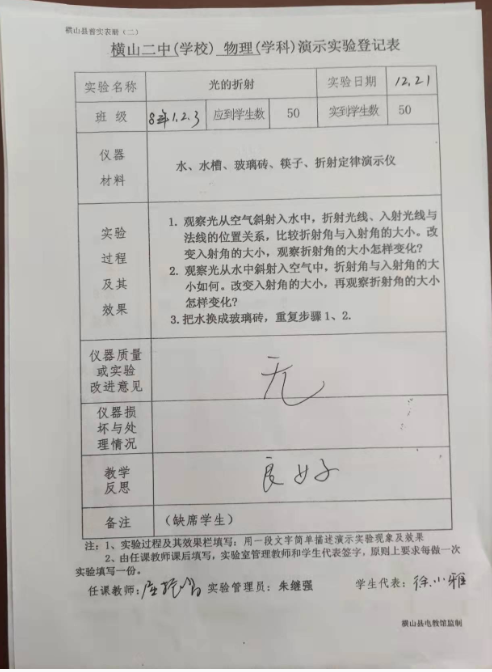 横山县普实表册（二）
横山二中(学校) 物理(学科)演示实验登记表
实验名称 光的折射 实验日期 12.21
班 级 8年1.2.3 应到学生数 50 实到学生数 50
仪器
材料
水、水槽、玻璃砖、筷子、折射定律演示仪
实验
过程
及其
效果
1. 观察光从空气斜射入水中，折射光线、入射光线与
法线的位置关系，比较折射角与入射角的大小。改
变入射角的大小，观察折射角的大小怎样变化？
2. 观察光从水中斜射入空气中，折射角与入射角的大
小如何。改变入射角的大小，再观察折射角的大小
怎样变化？
3.把水换成玻璃砖，重复步骤 1、2.
仪器质量
或实验
改进意见
无
仪器损
坏与处
理情况
教学
反思
良好
备注 （缺席学生）
注：1、实验过程及其效果栏填写：用一段文字简单描述演示实验现象及效果
2、由任课教师课后填写，实验室管理教师和学生代表签字，原则上要求每做一次
实验填写一份。
任课教师： 实验管理员：朱继强 学生代表：徐小雅
横山县电教馆监制